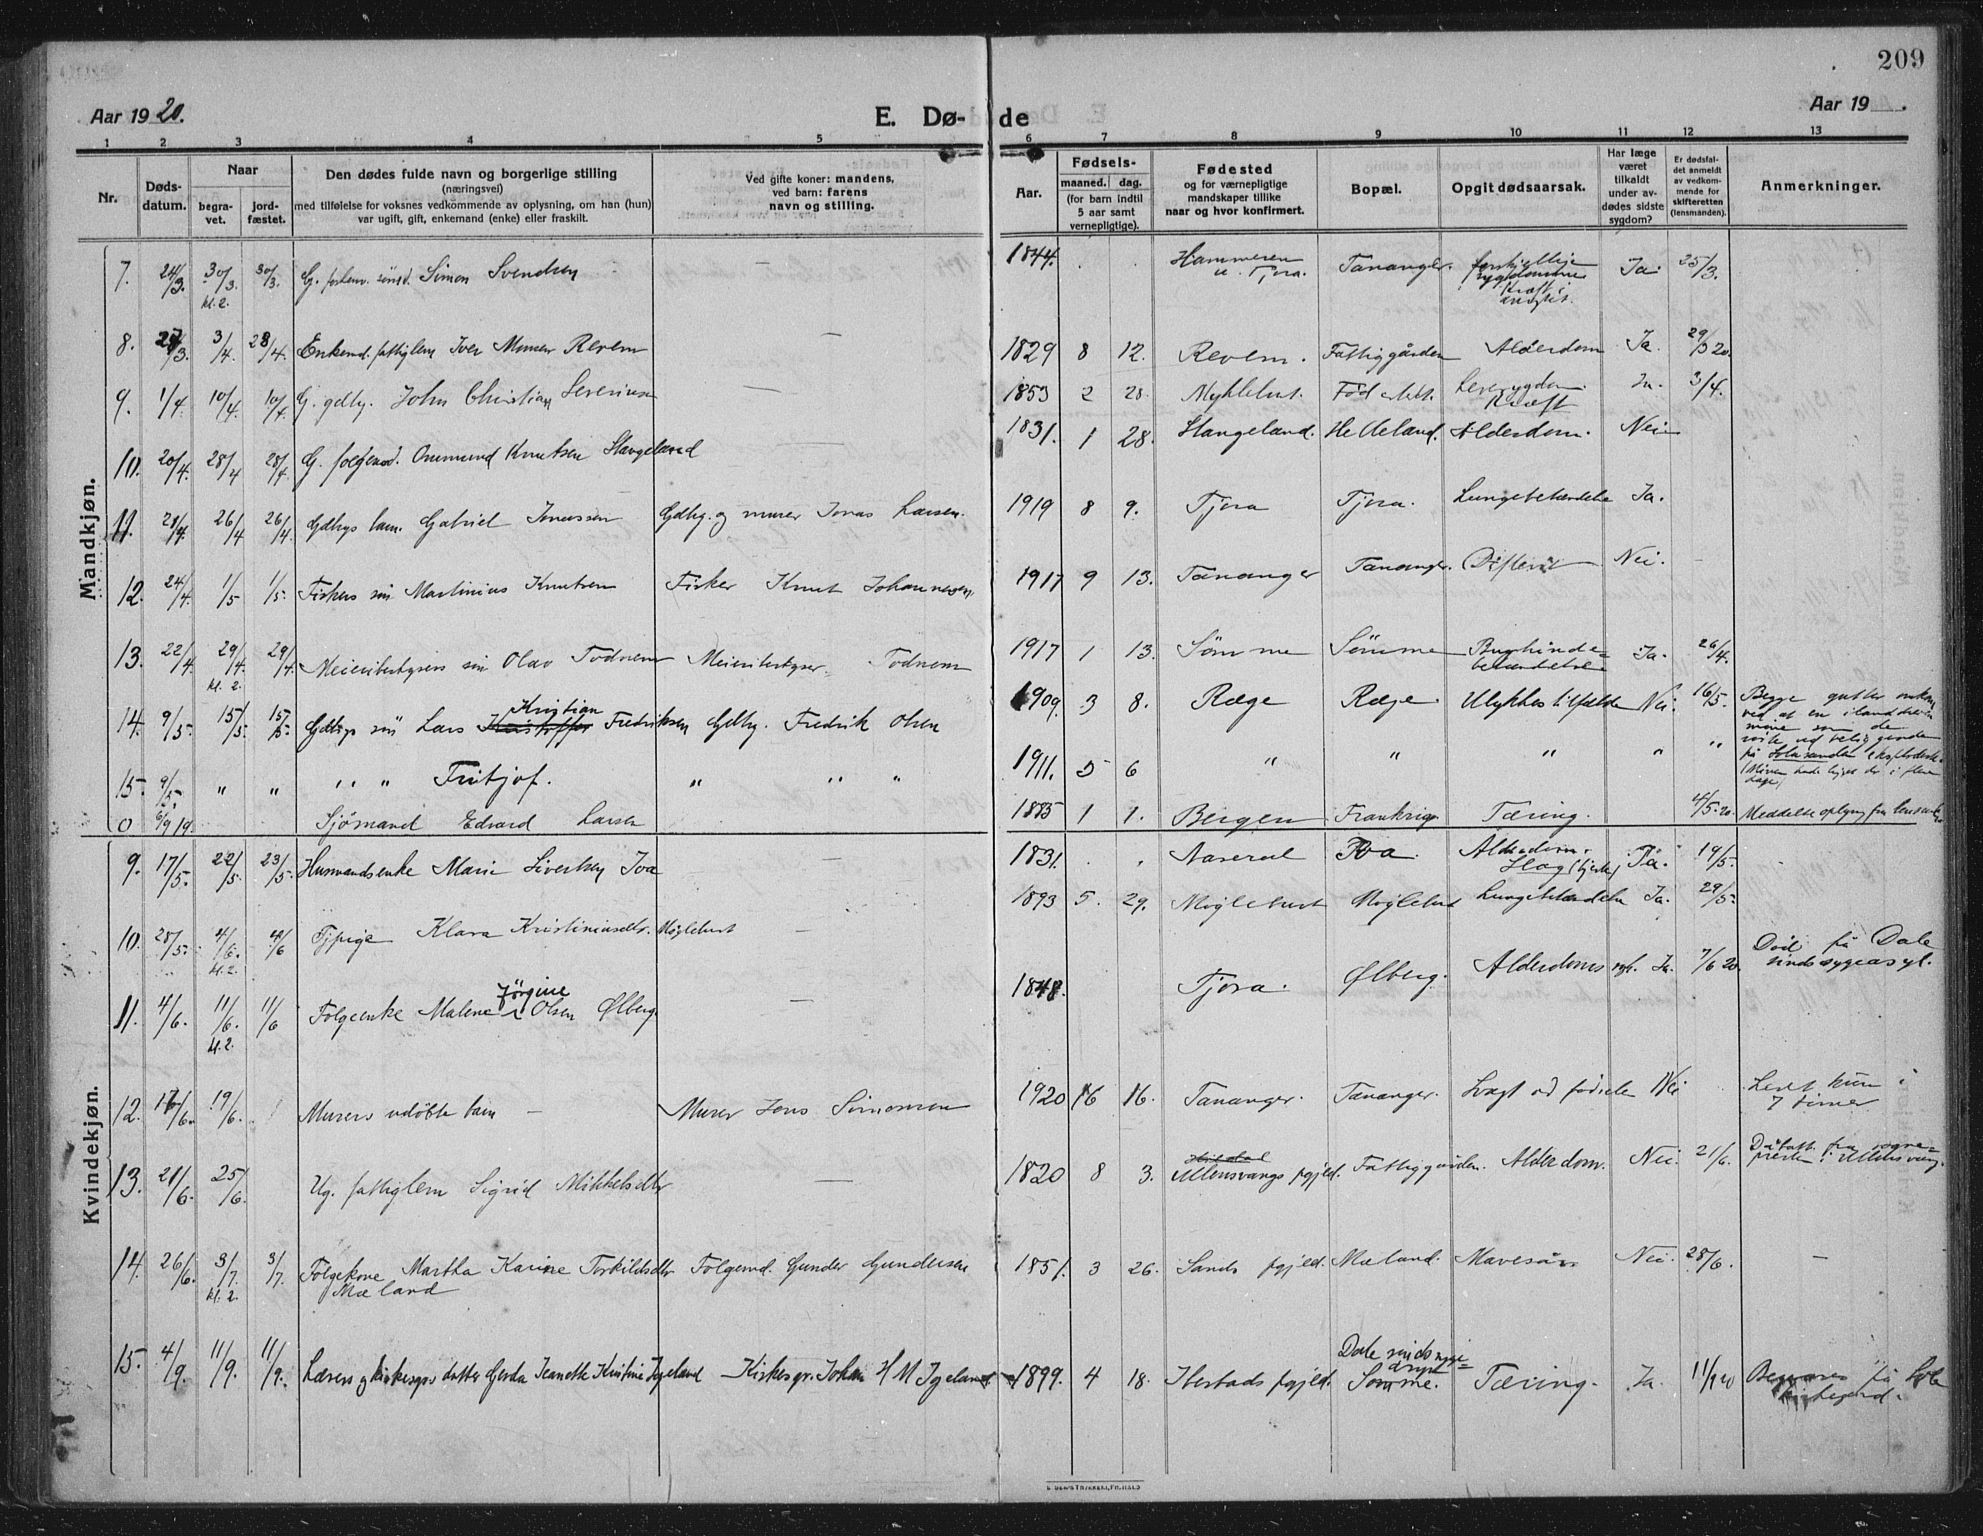 209
Aar 1920.
E. Dø-
de
Aar 19 .
1 2 3 4 5 6 7 8 9 10 11 12 13
Nr.
Døds-
datum.
Naar
begra-
vet.
jord-
fæstet.
Den dødes fulde navn og borgerlige stilling
(næringsvei)
med tilføielse for voksnes vedkommende av oplysning, om han (hun)
var ugift, gift, enkemand (enke) eller fraskilt.
Ved gifte koner: mandens,
ved barn: farens
navn og stilling.
Aar.
Fødsels-
maaned. dag.
(for barn indtil
5 aar samt
vernepligtige).
Fødested
og for værnepligtige
mandskaper tillike
naar og hvor konfirmert.
Bopæl.
Opgit dødsaarsak.
Har læge
været
tilkaldt
under av-
dødes sidste
sygdom?
Er dødsfal-
det anmeldt
av vedkom-
mende for
skifteretten
(lensmanden).
Anmerkninger.
Mandkjøn.
7. 24/3. 30/3. kl. 2. 30/3. G. Simon Svendsen — 1844. Hammeren Tjora. Tananger. Kræft i Ja. 25/3.
8. 3/4. Enkemd. fattiglem Iver Revem — 1829 8 12. Revem. Fattiggården Alderdom Ja. 29/3 20.
9. 1/4. 10/4. 10/4. G. gdbr. John Christian Severinsen — 1853 2 28. Myklebust. Leversygdom. Kræft Ja. 3/4.
10. 20/4. 28/4 28/4 G. Knutsen Stangeland 1831. 1 28. Stangeland. Helleland. Alderdom. Nei
11. 26/4 26/4. Gdbrs barn. Gabriel Jonassen Gdbr. og murer Jonas Larsen. 1919 8 9. Tjora Tjora. Lungebetændelse Ja.
12. 24/4. 1/5 1/5. Fiskers søn Martinius Knutsen Fisker Knut Johannesen. 1917 9 13. Tananger Tananger. Difterit Nei. —
13. 22/4 29/4. kl. 2. 29/4. Meieribestyrers søn Olav Todnem Meieribestyrer Todnem 1917 1 13. Sømme Sømme Bughinde-
betændelse Ja. 26/4.
14. 9/5. 15/5. 15/5. Gdbrs søn Lars Kristian Fredriksen Gdbr. Fredrik Olsen 1909. 3 8. Ræge Ræge. Ulykkestilfælde Nei. 16/5. Begge gutter omkom
ved at en ilanddreven
mine som de
på Solasanden eksploderte.
15. 9/5. " " " " Fritjof. " " " 1911. 5 6 " " " " "
0 6/9 19. Sjømand Edvard Larsen 1885 1 1. Bergen Frankrig Tæring. 4/5 20. Meddelte oplysn. fra lensmand.
Kvindekjøn.
9. 17/5. 22/5. 23/5. Husmandsenke Marie Sivertsen — 1831. Alderdom.
Slag (hjerte) Ja. 19/5.
10. 28/5. 4/6. kl. 2. 4/6 Tj.pige Klara Kristiniusdtr. Møglebust — 1893 5. 29. Møglebust Møglebust Lungebetændelse Ja. 29/5.
11. 4/6. 11/6. kl. 2. 11/6 Folgeenke Malene Jörgine Olsen Ølberg — 1848. Tjora. Ølberg. Ja. 7/6 20. Død på Dale
sindssygeasyl.
12. 19/6. Murers udöbte barn — Murer Jens Simonsen 1920 16. Tananger. Tananger. Svagt ved fødsele Nei Levet kun i
7 timer
13. 25/6. Ug. fattiglem Sigrid Mikkelsdtr — 1820 8 3. Ullensvangs pgjeld. Fattiggården. Alderdom. Nei. 21/6.
14. 26/6. 3/7. kl. 2. 3/7. Folgekone Martha Karine Torkildsdtr
Mæland Folgemd. Gunder Gundersen 1851. 3 26. Sands pgjeld. Mæland. Mavesår Nei. 28/6. —
15. 4/9. 11/9. 11/9. Lærers og kirkesgrs datter Gerda Jeanette Kristine Igeland — Kirkesgr. Johan H M Igeland — 1899. 4 18. Ibestads pgjeld. Dale sindssyge-
asyl
Sømme. Tæring. Ja. 11/9 20 på Sola
kirkegård.